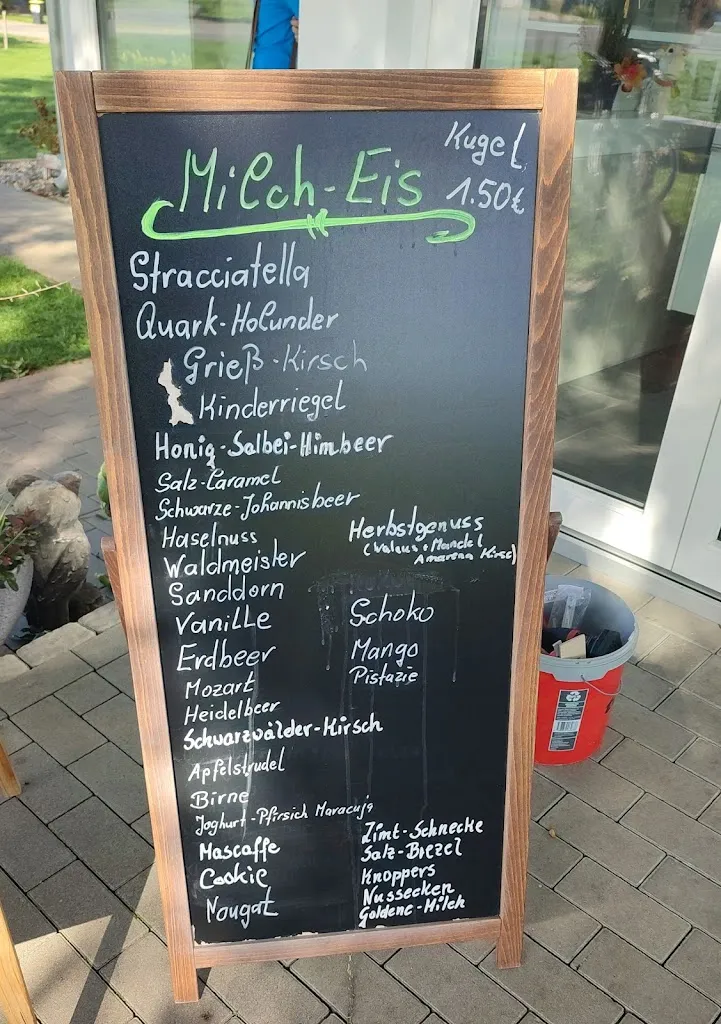 Milch-Eis
Kugel
1.50€
Stracciatella
Quark-Holunder
Grieß-Kirsch
Kinderriegel
Honig-Salbei-Himbeer
Salz-Caramel
Schwarze-Johannisbeer
Haselnuss
Waldmeister
Sanddorn
Vanille
Erdbeer
Mozart
Heidelbeer
Schwarzwälder-Kirsch
Apfelstrudel
Birne
Joghurt-Pfirsich Maracuja
Mascaffe
Cookie
Nougat
Herbstgenuss
(Walnus + Mandel
Amarena Kirsch)
Schoko
Mango
Pistazie
Zimt-Schnecke
Salz-Brezel
Knoppers
Nussecken
Goldene-Milch